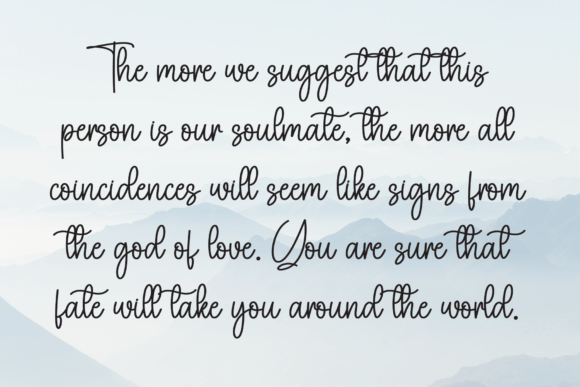 The more we suggest that this
person is our soulmate, the more all
coincidences will seem like signs from
the god of love. You are sure that
fate will take you around the world.